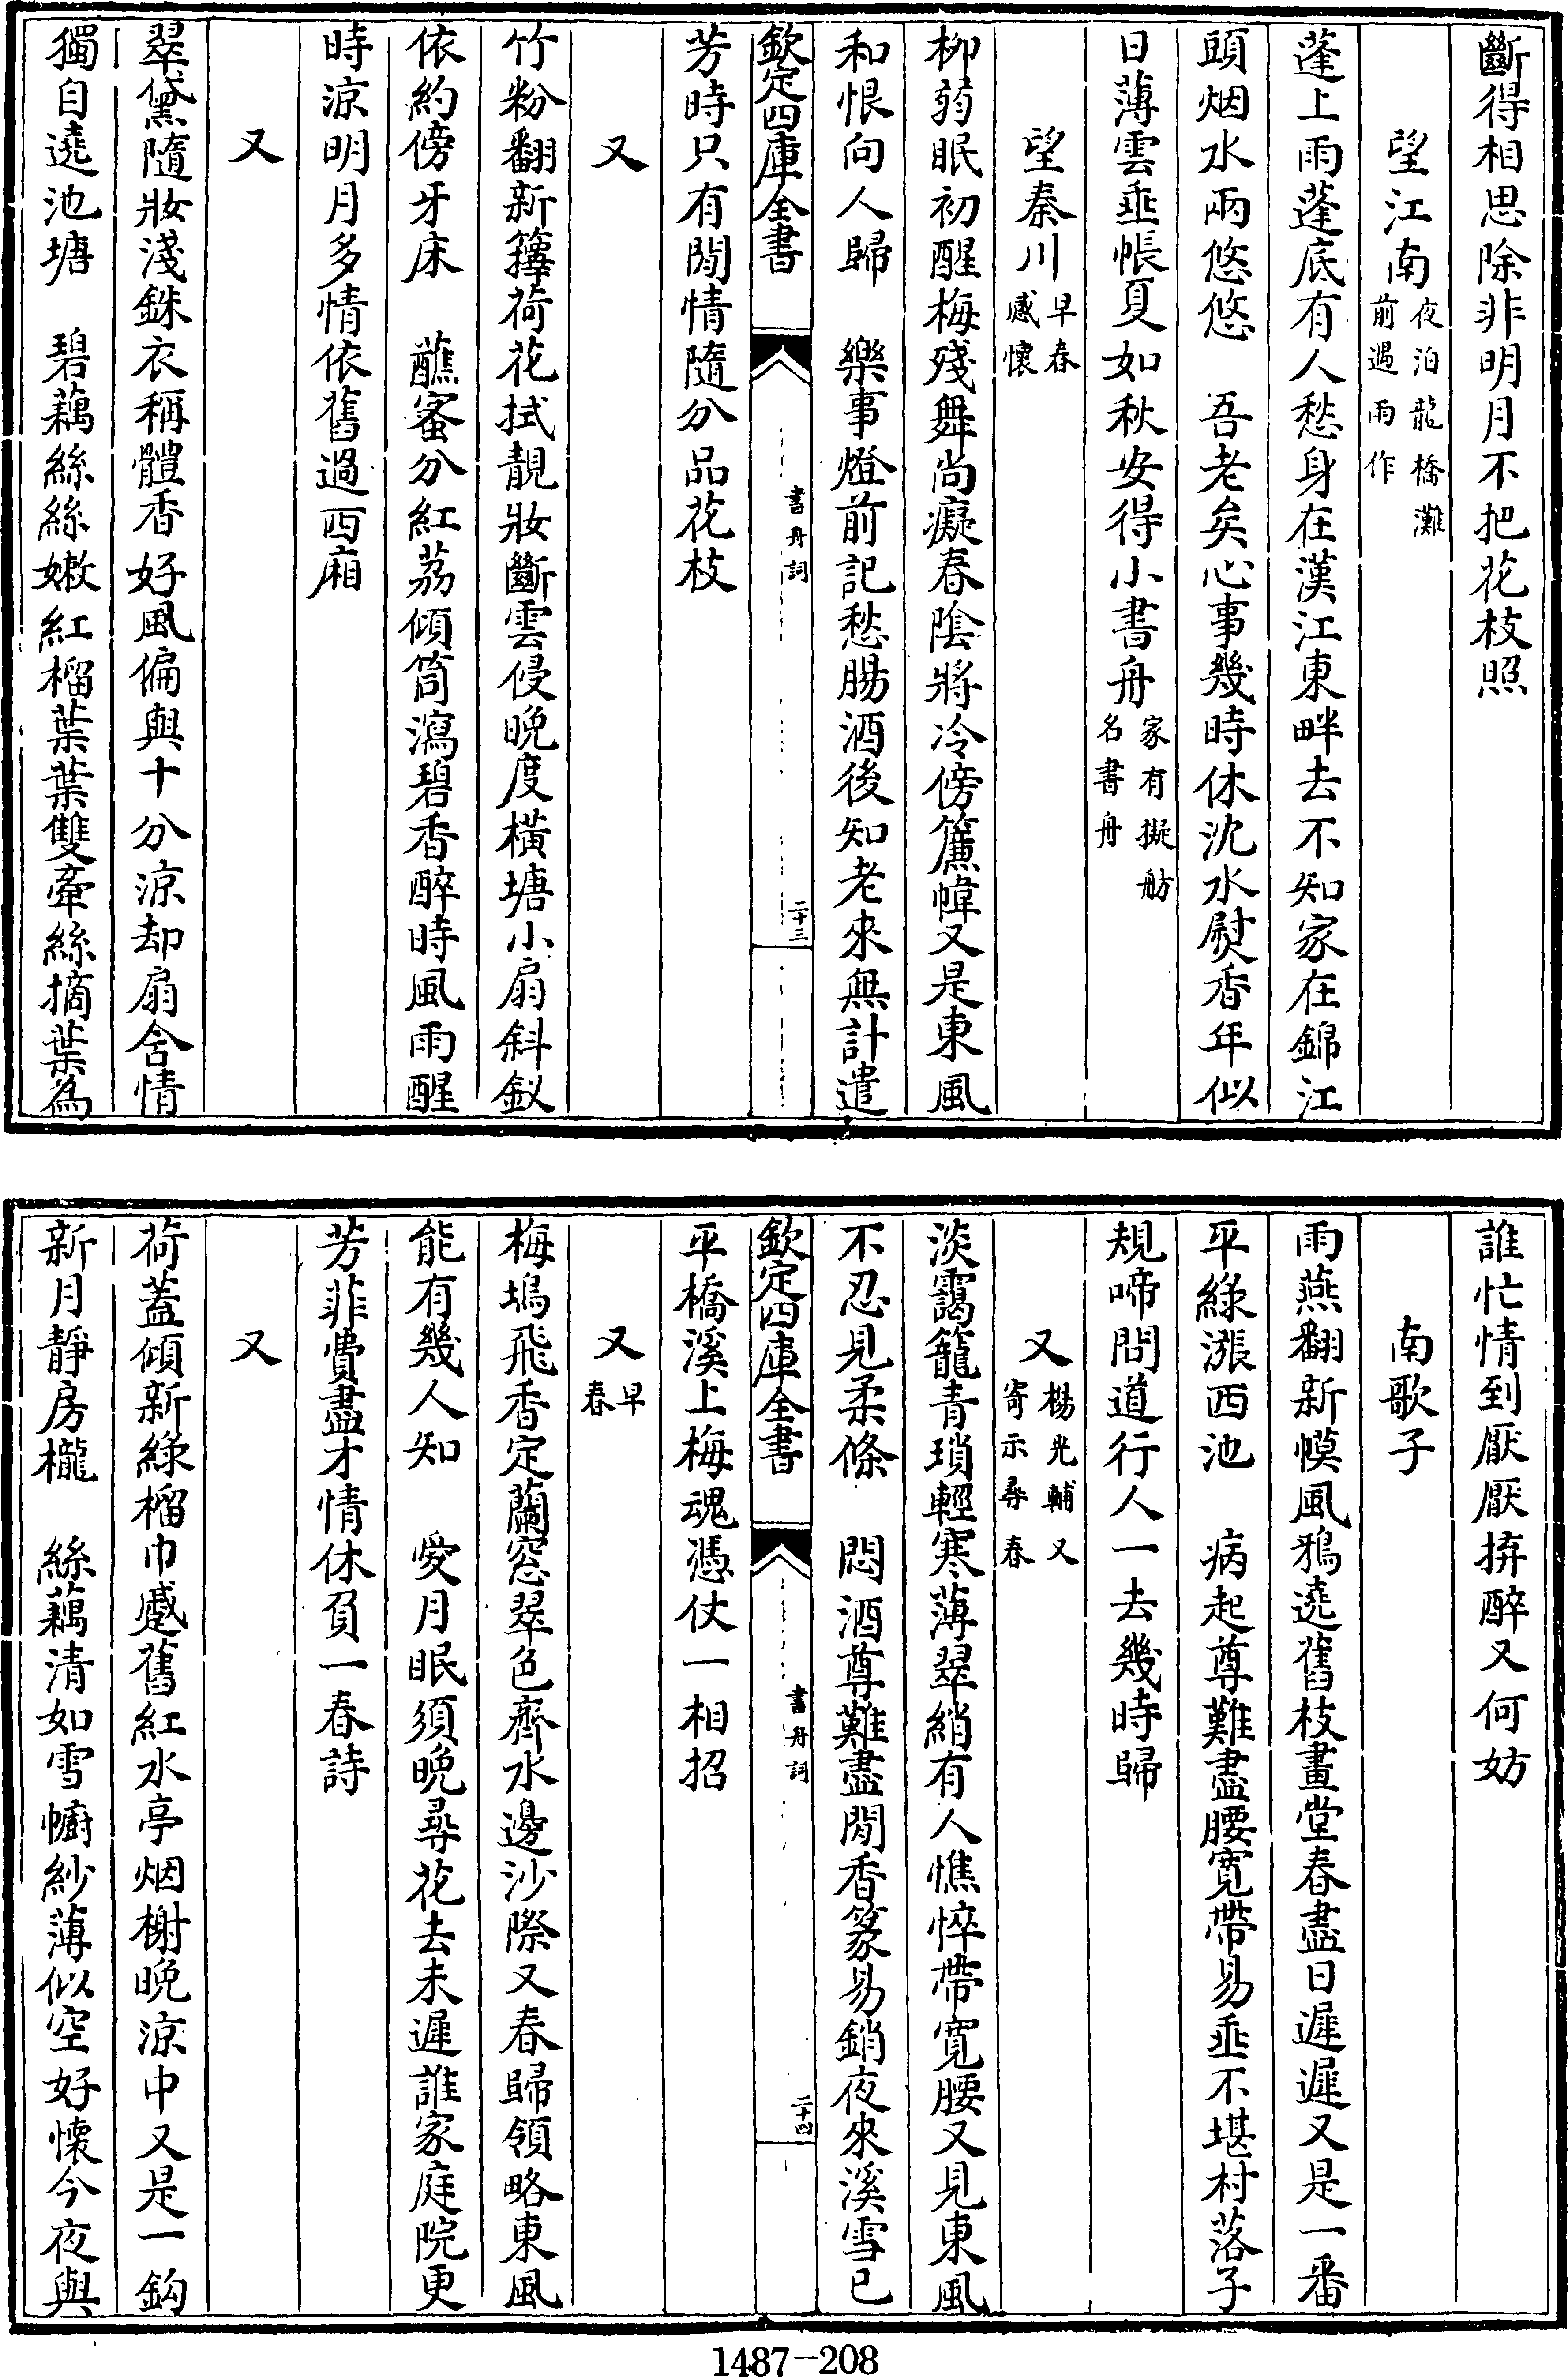 斷得相思除非明月不把花枝照
望江南夜泊龍橋灘
前遇雨作
蓬上雨蓬底有人愁身在漢江東畔去不知家在錦江
頭烟水兩悠悠　吾老矣心事幾時休沈水熨香年似
日薄雲垂帳夏如秋安得小書舟家有擬舫
名書舟
望秦川早春
感懷
柳弱眠初醒梅殘舞尚癡春陰將冷傍簾幃又是東風
和恨向人歸　樂事燈前記愁腸酒後知老來無計遣
欽定四庫全書
書舟詞
二十三
芳時只有閒情隨分品花枝
又
竹粉翻新籜荷花拭靚妝斷雲侵晚度橫塘小扇斜釵
依約傍牙床　蘸蜜分紅荔傾筒瀉碧香醉時風雨醒
時涼明月多情依舊過西廂
又
翠黛隨妝淺銖衣稱體香好風偏與十分涼却扇含情
獨自遶池塘　碧藕絲絲嫩紅榴葉葉雙牽絲摘葉為
誰忙情到厭厭拚醉又何妨
南歌子
雨燕翻新幙風鴉遶舊枝畫堂春盡日遲遲又是一番
平綠漲西池　病起尊難盡腰寛帶易垂不堪村落子
規啼問道行人一去幾時歸
又楊光輔又
寄示尋春
淡靄籠青瑣輕寒薄翠綃有人憔悴帶寛腰又見東風
不忍見柔條　悶酒尊難盡閒香篆易銷夜來溪雪已
欽定四庫全書
書舟詞
二十四
平橋溪上梅魂憑仗一相招
又早
春
梅塢飛香定蘭窓翠色齊水邊沙際又春歸領略東風
能有幾人知　愛月眠須晚尋花去未遲誰家庭院更
芳菲費盡才情休負一春詩
又
荷蓋傾新綠榴巾蹙舊紅水亭烟榭晚涼中又是一鈎
新月靜房櫳　絲藕清如雪㡡紗薄似空好懷今夜與
1487—208